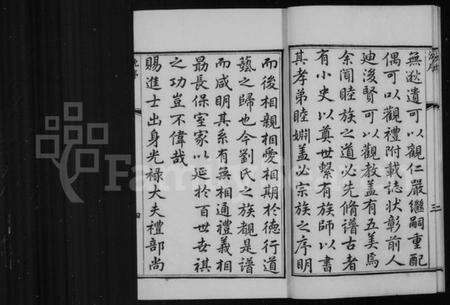 無歝遺可以觀仁嚴繼嗣重配
偶可以觀禮附載誌狀彰前人
迪後賢可以觀教蓋有五美焉
余聞睦族之道必先脩譜古者
有小史以奠世繫有族師以書
其孝弟睦婣蓋必宗族之序明
而後相親相愛相期於德行道
藝之歸也今劉氏之族覩是譜
而咸明其系有無相通禮義相
勗長保室家以延於百世世祺
之功豈不偉哉
賜進士出身光祿大夫禮部尚